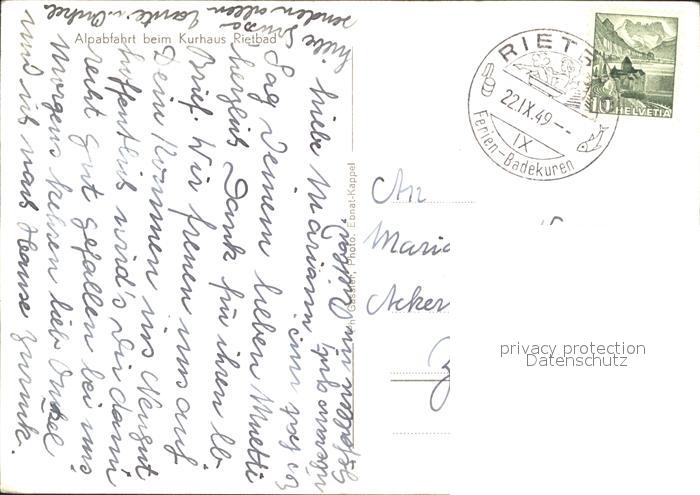 Alpabfahrt beim Kurhaus Rietbad
Liebe Mariann
Sag Deinem lieben Muetti
herzlich Dank für ihren lb.
Brief. Wir freuen uns auf
Dein Kommen ins Neugut
hoffentlich wird's Dir dann
recht gut gefallen bei uns
Morgens kehren lieb Onkel
und ich nach Hause zurück.
senden allen Tante u. Onkel
Photo: Ebnat-Kappel
RIET
22.IX.49
IX
Ferien-Badekuren
10
HELVETIA
An
Maria
Acker
privacy protection
Datenschutz